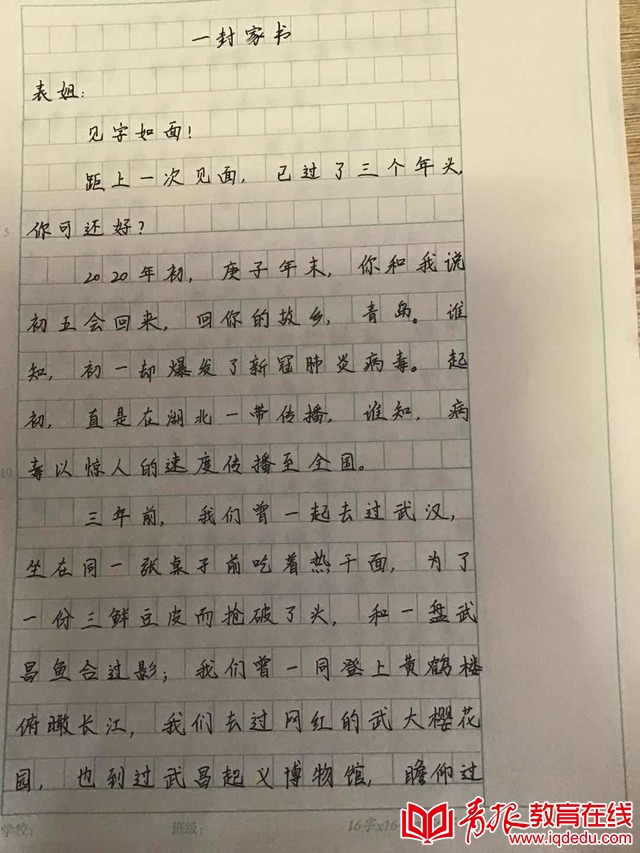 一封家书
表姐：
见字如面！
距上一次见面，已过了三个年头，
你可还好？
2020年初，庚子年末，你和我说
初五会回来，回你的故乡，青岛。谁
知，初一却爆发了新冠肺炎病毒。起
初，直是在湖北一带传播，谁知，病
毒以惊人的速度传播至全国。
三年前，我们曾一起去过武汉，
坐在同一张桌子前吃着热干面，为了
一份三鲜豆皮而抢破了头，和一盘武
昌鱼合过影；我们曾一同登上黄鹤楼
俯瞰长江，我们去过网红的武大樱花
园，也到过武昌起义博物馆，瞻仰过
5
10
学校：
班级：
16字x16
青报教育在线
www.iqdedu.com